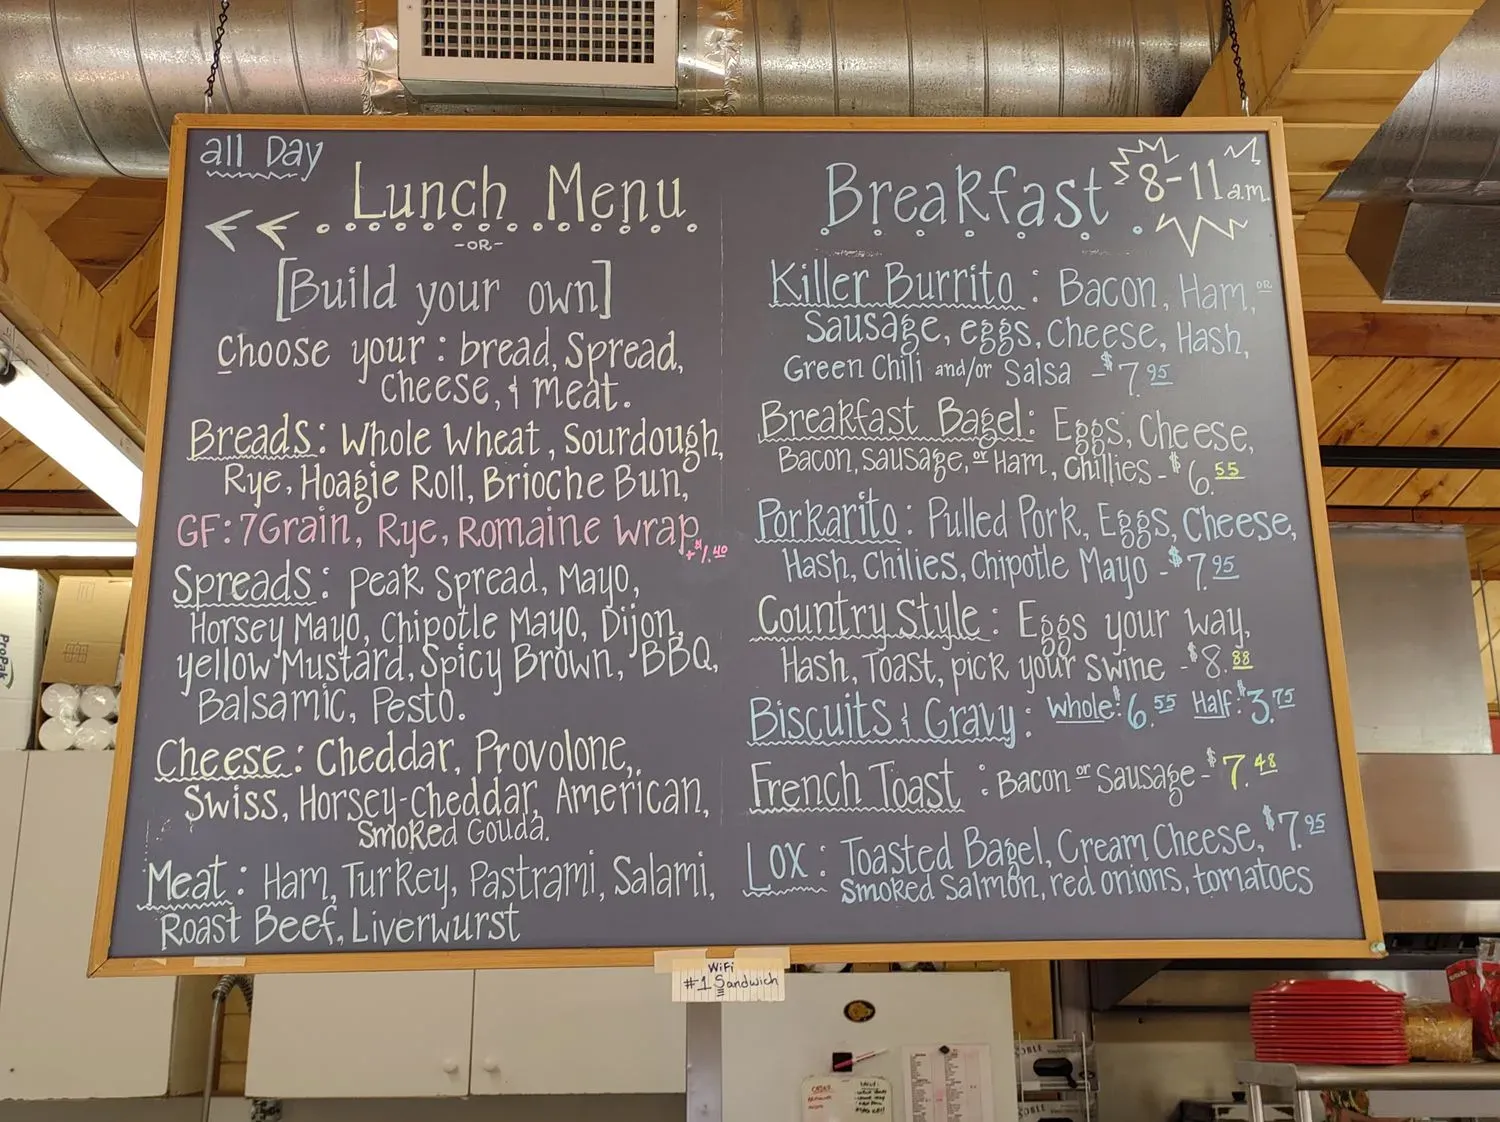 all Day
Lunch Menu
-OR-
[Build your own]
Choose your: bread, Spread,
Cheese, & meat.
Breads: Whole Wheat, Sourdough,
Rye, Hoagie Roll, Brioche Bun,
GF: 7Grain, Rye, Romaine Wrap
+$1.40
Spreads: Peak Spread, Mayo,
Horsey Mayo, Chipotle Mayo, Dijon,
yellow Mustard, Spicy Brown, BBQ,
Balsamic, Pesto.
Cheese: Cheddar, Provolone,
Swiss, Horsey-Cheddar, American,
Smoked Gouda.
Meat: Ham, Turkey, Pastrami, Salami,
Roast Beef, Liverwurst
Breakfast 8-11 a.m.
Killer Burrito: Bacon, Ham, or
Sausage, eggs, Cheese, Hash,
Green Chili and/or Salsa - $7.95
Breakfast Bagel: Eggs, Cheese,
Bacon, sausage, or Ham, Chillies - $6.55
Porkarito: Pulled Pork, Eggs, Cheese,
Hash, Chilies, Chipotle Mayo - $7.95
Country Style: Eggs your way,
Hash, Toast, pick your Swine - $8.88
Biscuits & Gravy: Whole: $6.55 Half: $3.75
French Toast: Bacon or Sausage - $7.48
Lox: Toasted Bagel, Cream Cheese, $7.95
Smoked Salmon, red onions, tomatoes
WiFi
#1 Sandwich
ProPak